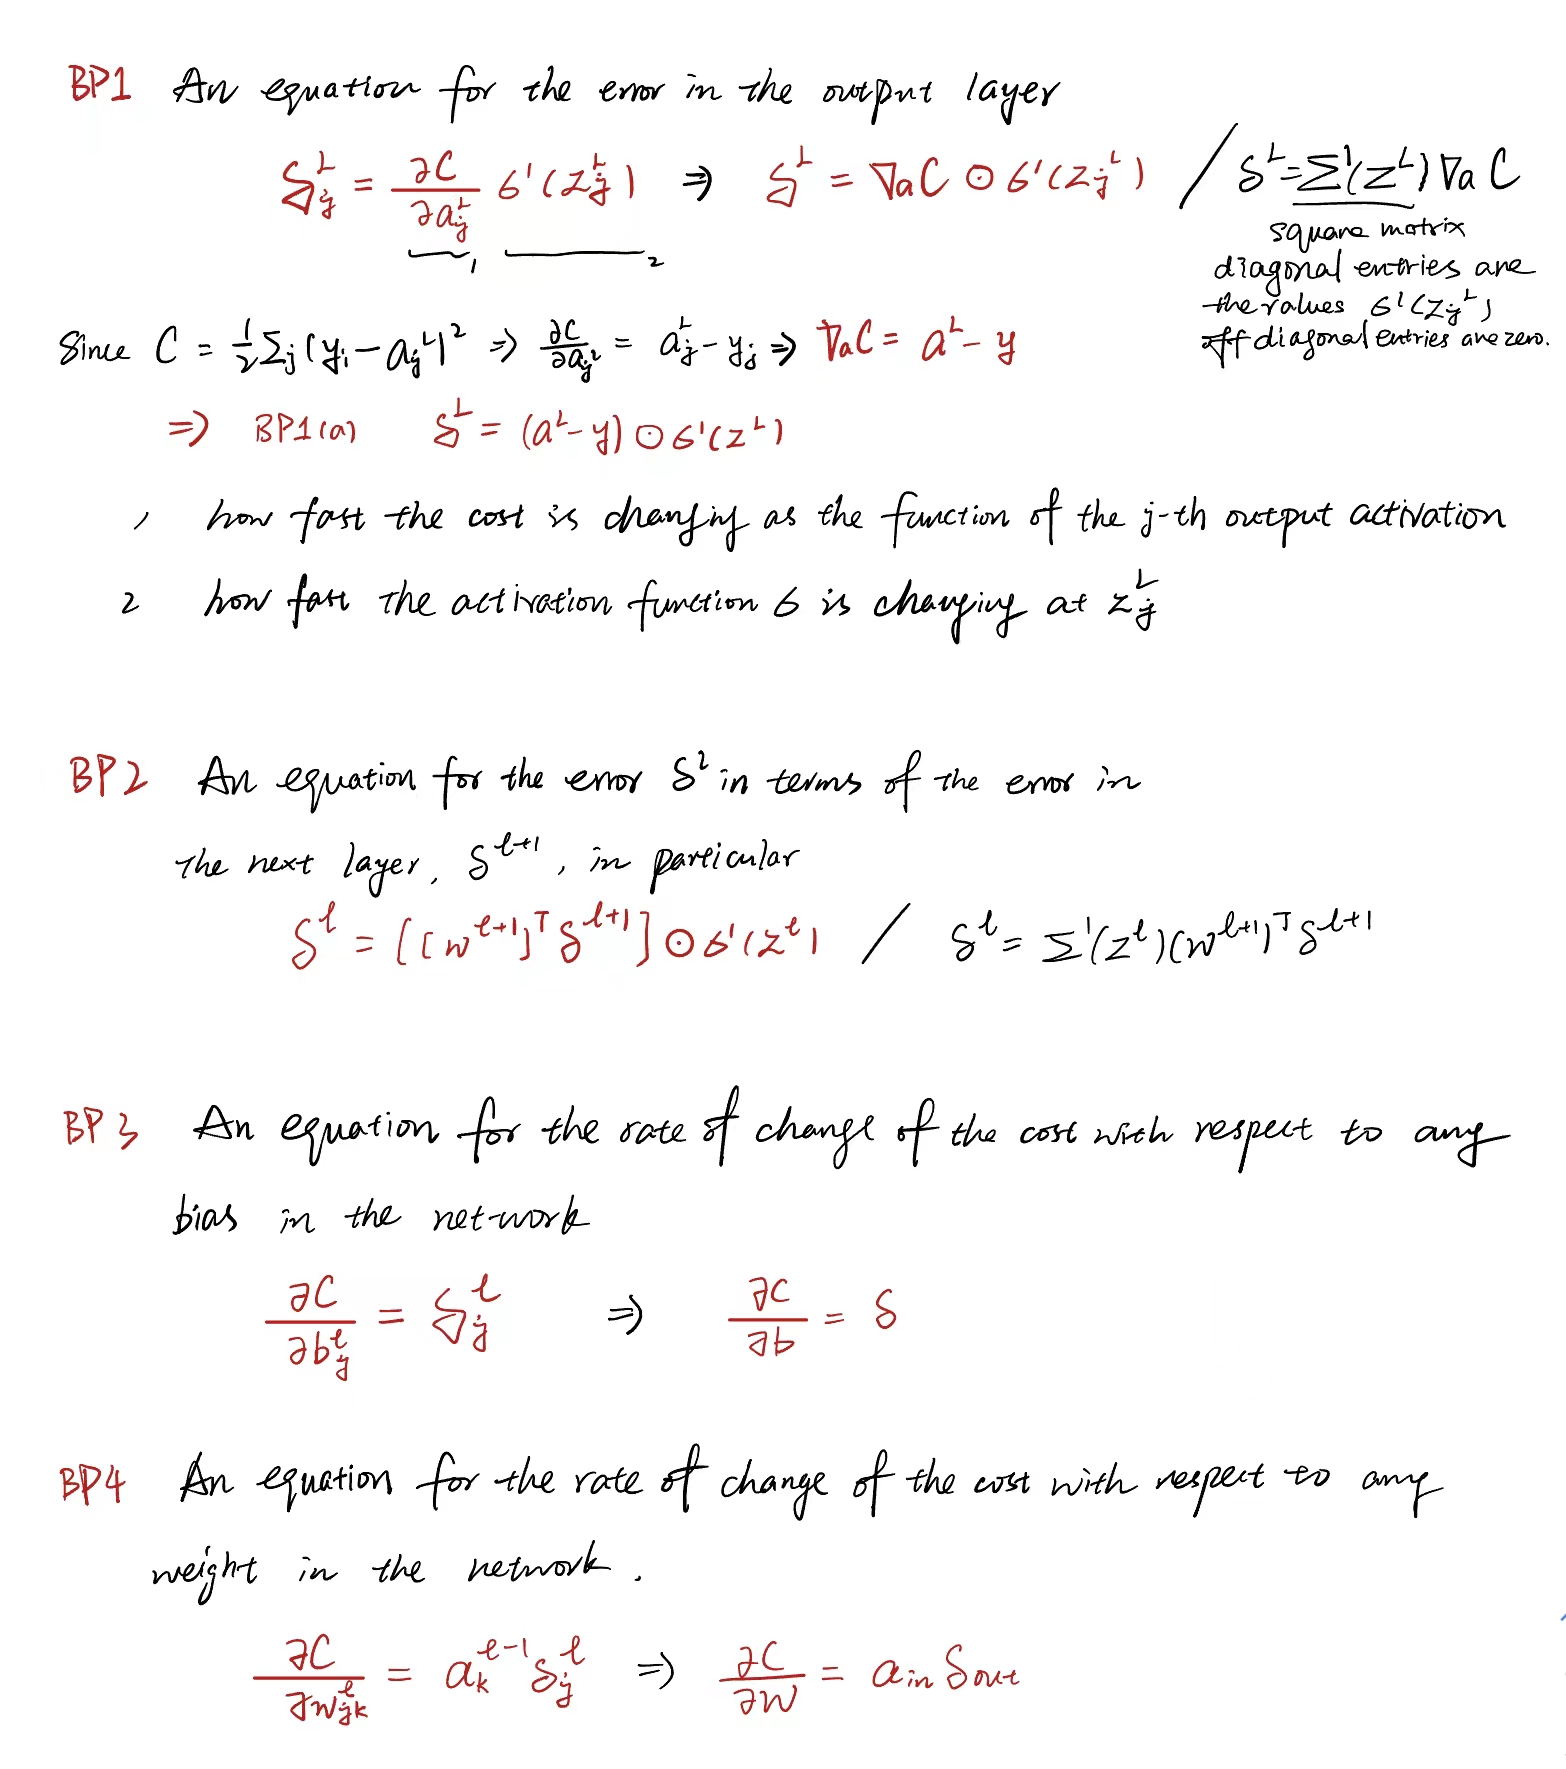 BP1 An equation for the error in the output layer
δ_j^L = ∂C/∂a_j^L σ'(z_j^L) ⇒ δ^L = ∇aC ⊙ σ'(z_j^L) / δ^L = Σ'(z^L) ∇a C
1 2
square matrix
diagonal entries are
the values σ'(z_j^L)
off diagonal entries are zero.
Since C = 1/2 Σ_j (y_i − a_j^L)^2 ⇒ ∂C/∂a_j^L = a_j^L − y_j ⇒ ∇aC = a^L − y
⇒ BP1(a) δ^L = (a^L − y) ⊙ σ'(z^L)
1 how fast the cost is changing as the function of the j-th output activation
2 how fast the activation function σ is changing at z_j^L
BP2 An equation for the error δ^l in terms of the error in
the next layer, δ^{l+1}, in particular
δ^l = [(w^{l+1})^T δ^{l+1}] ⊙ σ'(z^l) / δ^l = Σ'(z^l)(w^{l+1})^T δ^{l+1}
BP3 An equation for the rate of change of the cost with respect to any
bias in the network
∂C/∂b_j^l = δ_j^l ⇒ ∂C/∂b = δ
BP4 An equation for the rate of change of the cost with respect to any
weight in the network.
∂C/∂w_jk^l = a_k^{l-1} δ_j^l ⇒ ∂C/∂w = a_in δ_out